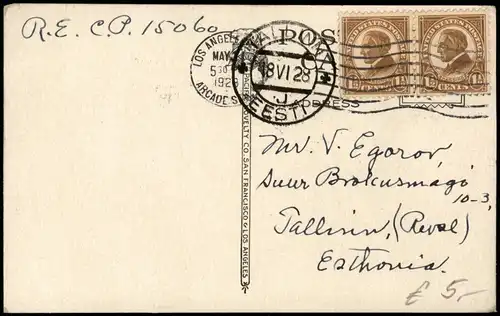 R.E.C.P. 15060
POST CARD
LOS ANGELES
MAY
5 30
1928
ARCADE S
TALLINN
18 VI 28
J
EESTI
UNITED STATES POSTAGE
1½ CENTS 1½
UNITED STATES POSTAGE
1½ CENTS 1½
ADDRESS
NOVELTY CO. SAN FRANCISCO & LOS ANGELES
Mr. V. Egorov,
Suur Brokusmägi
10-3,
Tallinn, (Reval)
Esthonia.
£ 5,-